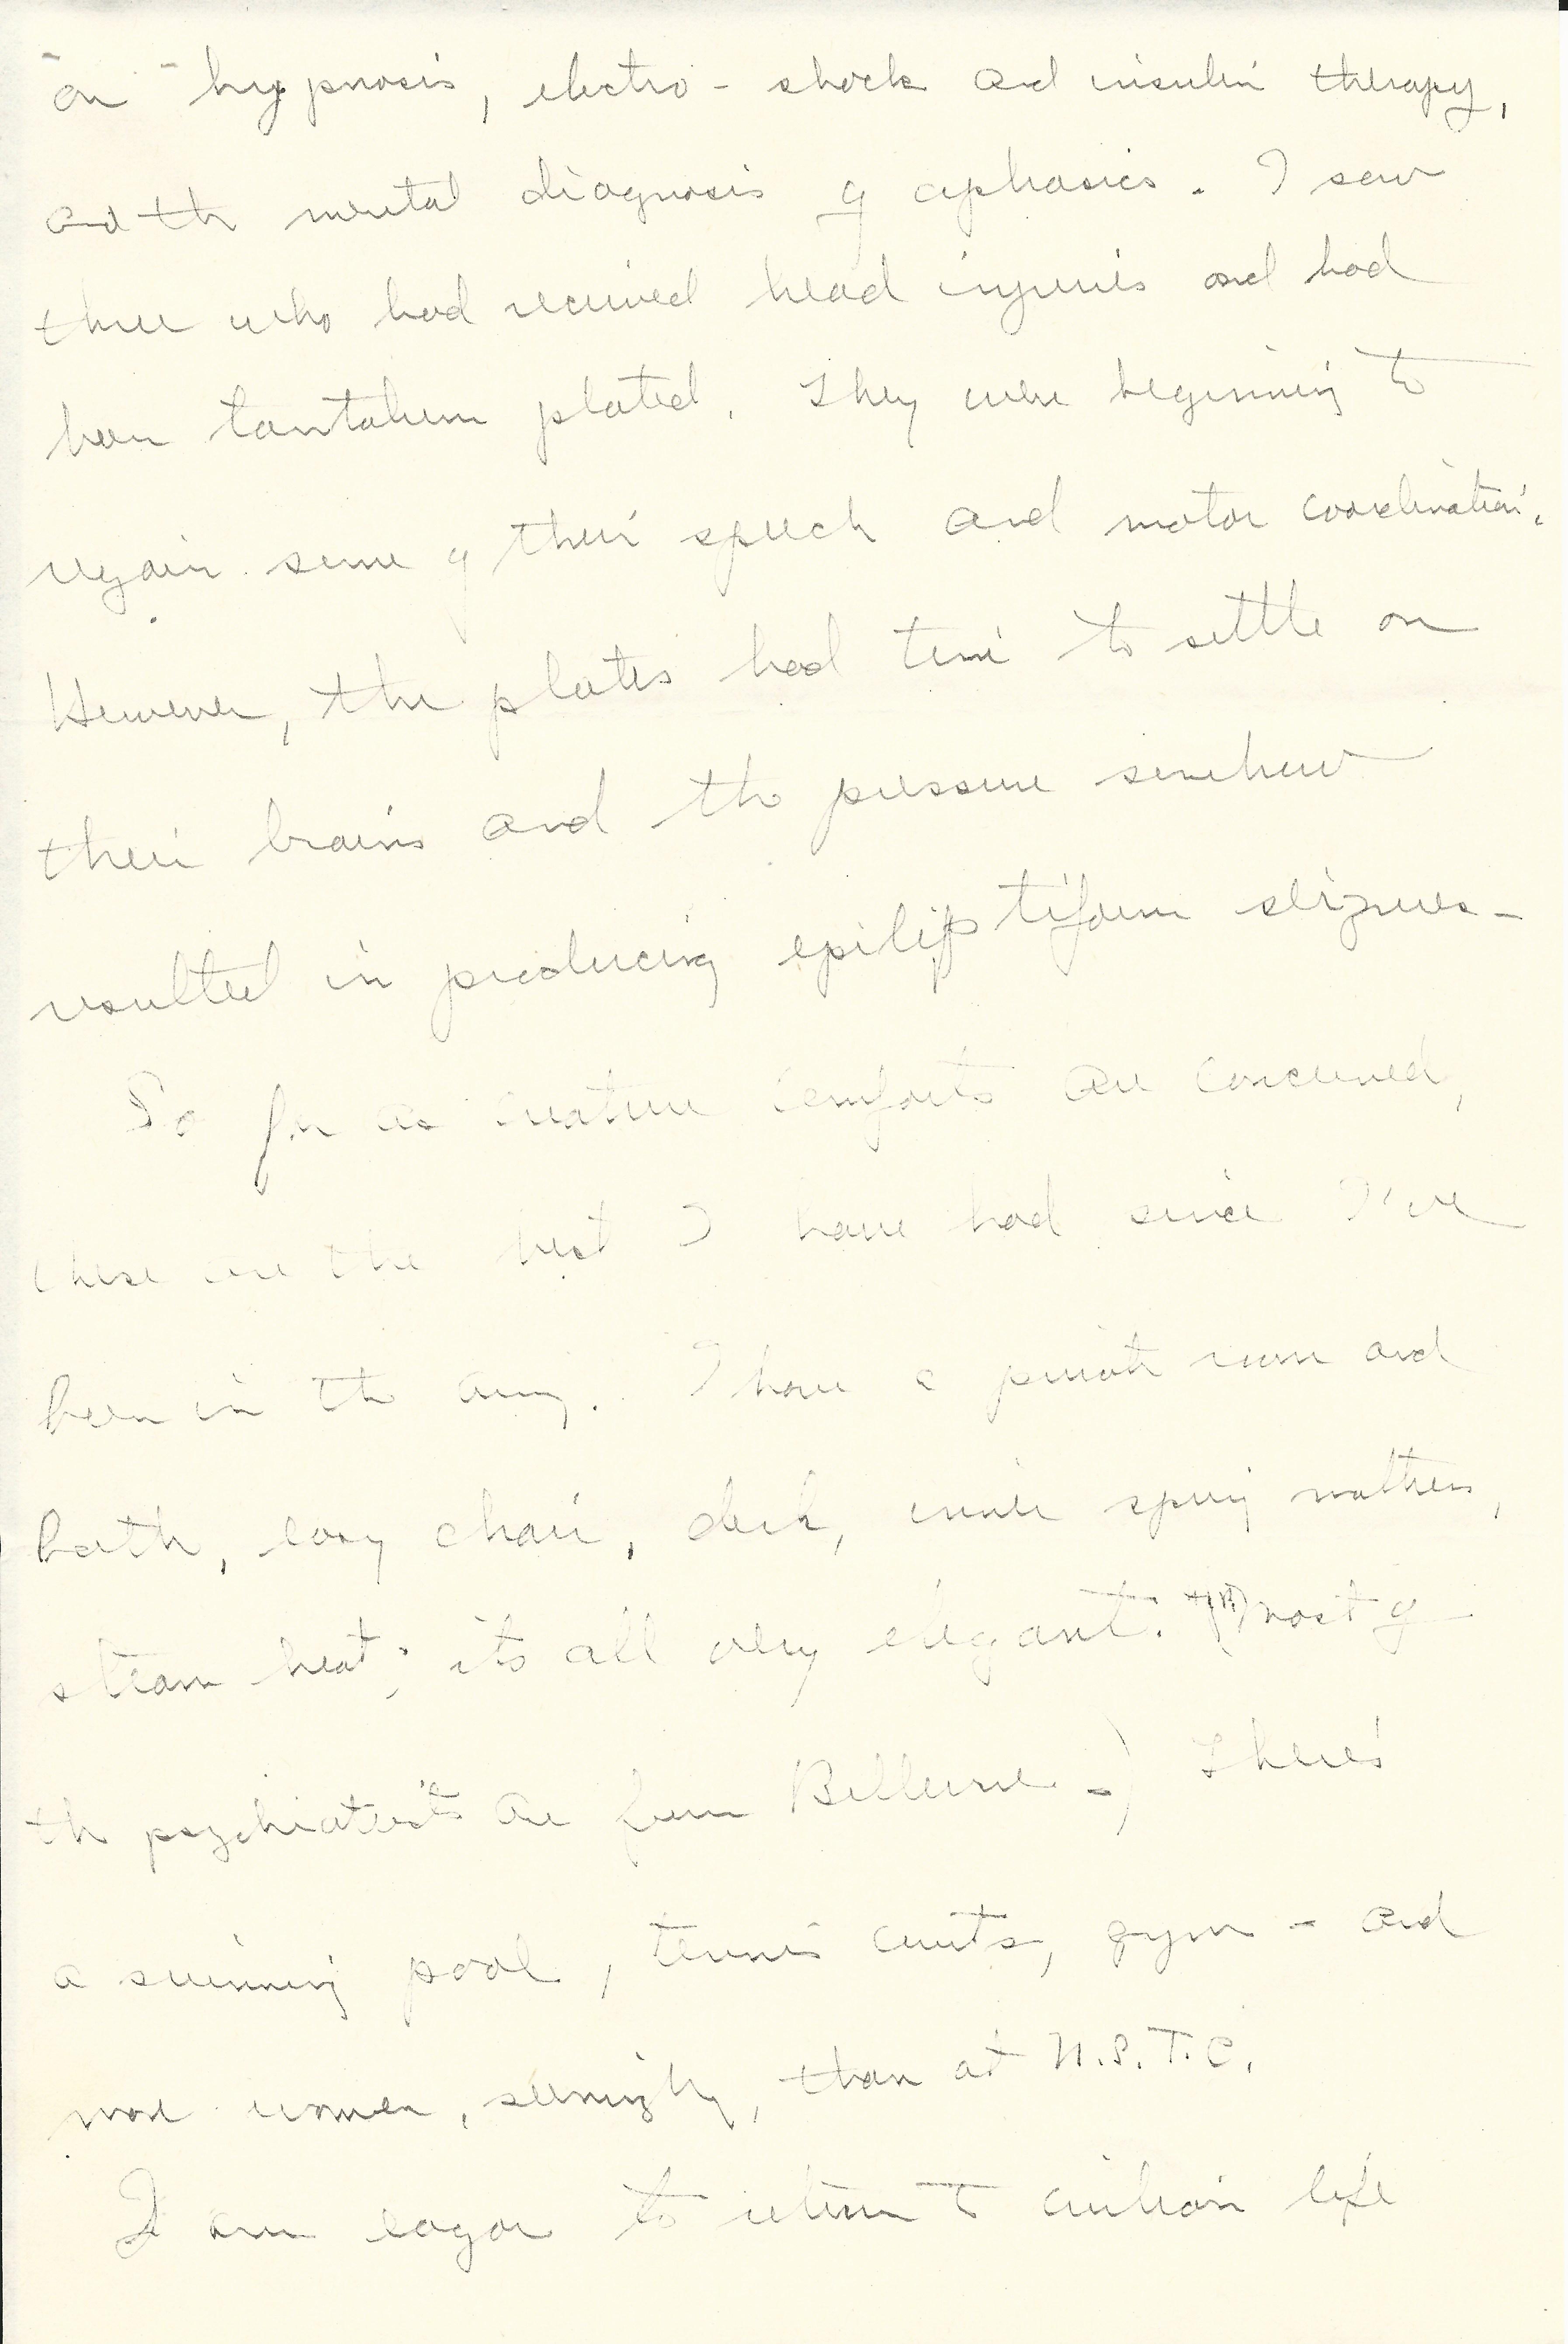 on hypnosis, electro-shock and insulin therapy,
and the mental diagnosis of aphasics. I saw
three who had received head injuries and had
been tantalum plated. They were beginning to
regain some of their speech and motor coordination.
However, the plates had time to settle on
their brains and the pressure somehow
resulted in producing epileptiform seizures -
So far as creature comforts are concerned,
these are the best I have had since I've
been in the army. I have a private room and
bath, easy chair, desk, inner spring mattress,
steam heat; its all very elegant. (Most of
the psychiatrists are from Bellevue -) There's
a swimming pool, tennis courts, gym - and
more women, seemingly, than at N.S.T.C.
I am eager to return to civilian life